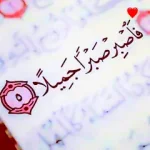 فَٱصْبِرْ صَبْرًا جَمِيلًا ٥